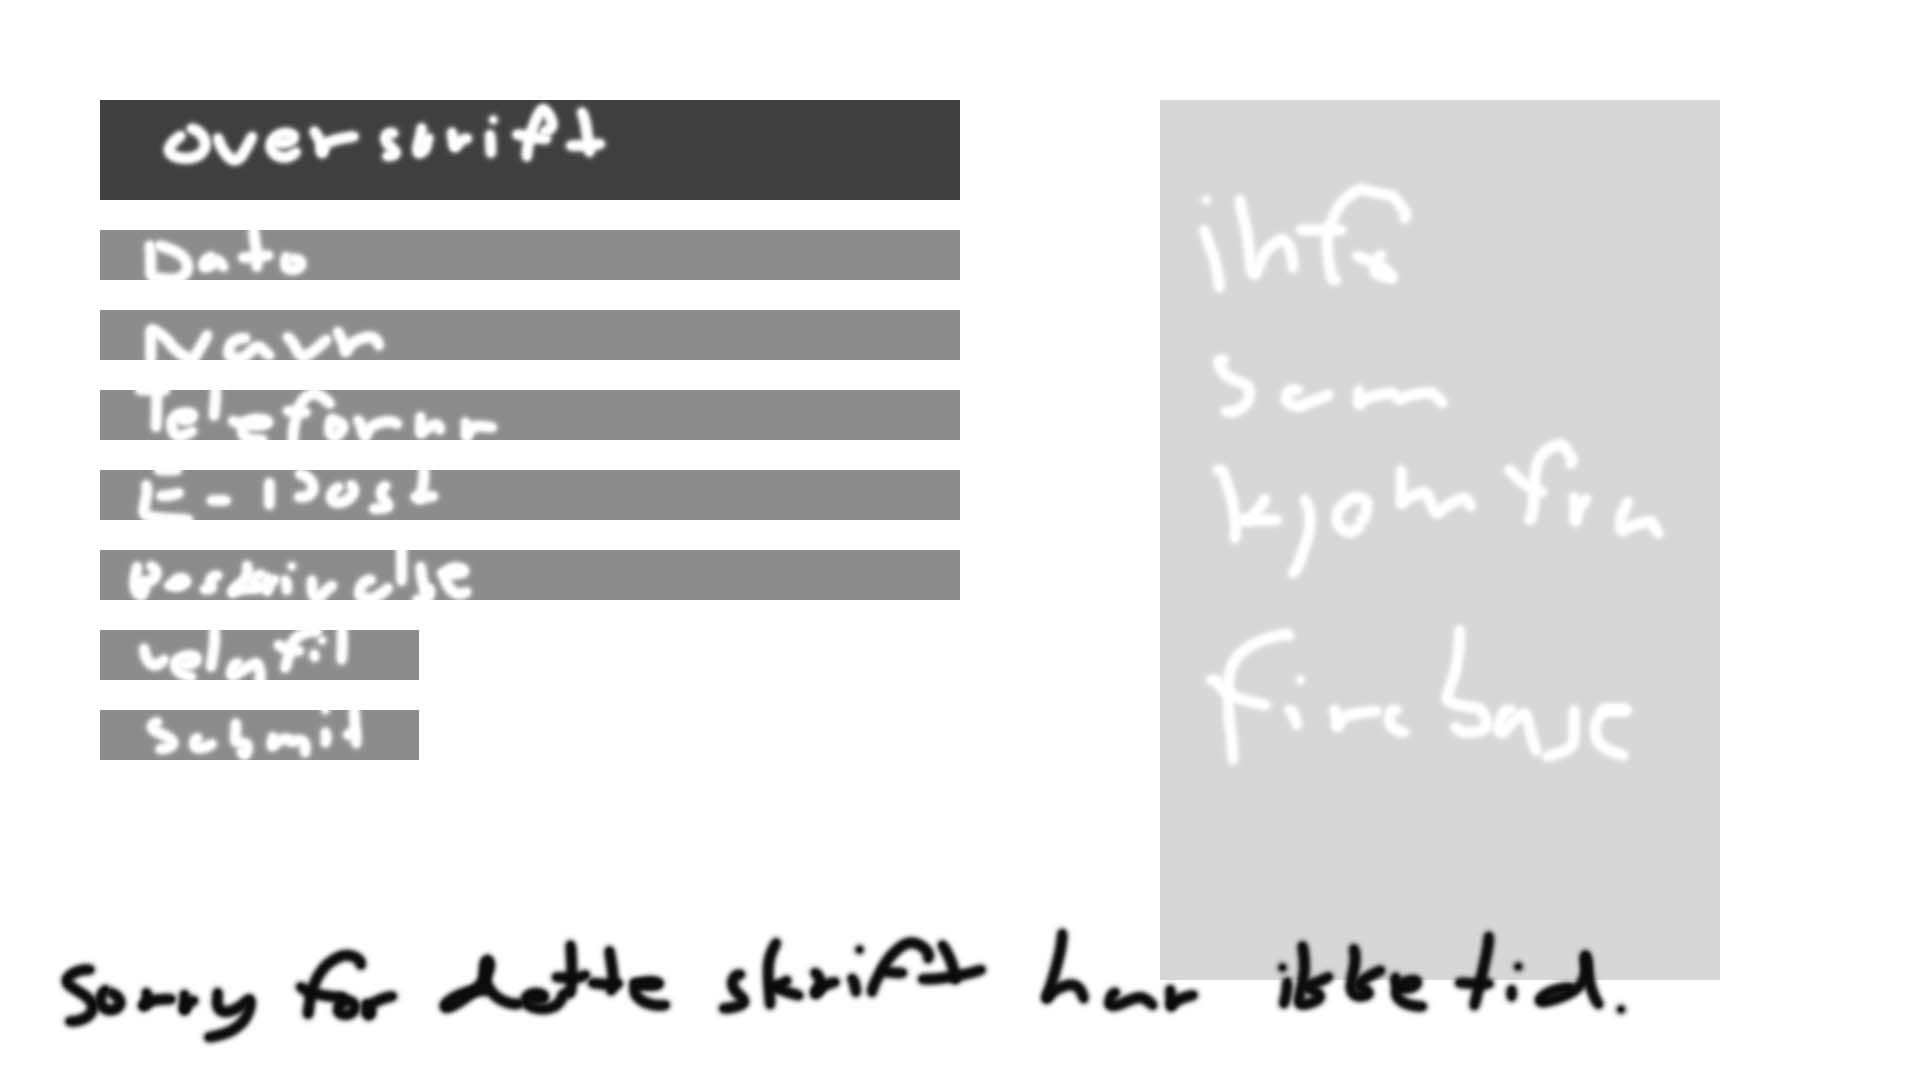 overskrift
Dato
Navn
Telefonnr
E-Post
Beskrivelse
velg fil
submit
info
som
kjem fra
firebase
Sorry for dette skrift har ikke tid.